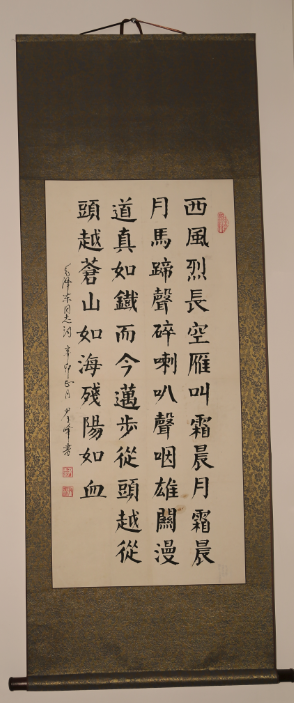 西風烈長空雁叫霜晨月霜晨
月馬蹄聲碎喇叭聲咽雄關漫
道真如鐵而今邁步從頭越從
頭越蒼山如海殘陽如血
毛澤东同志词 辛卯 月 峰書